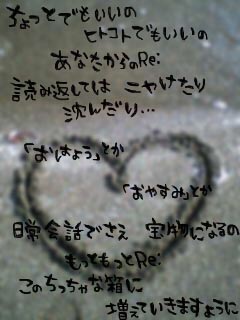 ちょっとでもいいの
ヒトコトでもいいの
あなたからのRe:
読み返しては にやけたり
沈んだり…
「おはよう」とか
「おやすみ」とか
日常会話でさえ 宝物になるの
もっともっとRe:
このちっちゃな箱に
増えていきますように